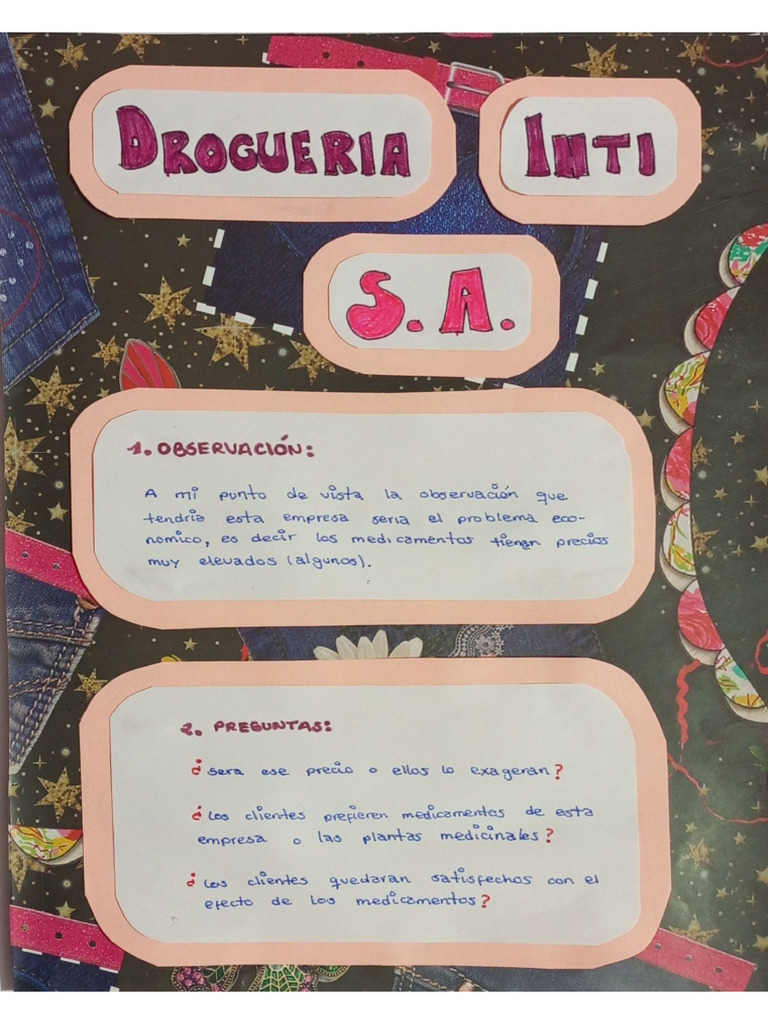 DROGUERIA INTI
S. A.
1. OBSERVACIÓN:
A mi punto de vista la observación que
tendria esta empresa seria el problema eco-
nomico, es decir los medicamentos tienen precios
muy elevados (algunos).
2. PREGUNTAS:
¿sera ese precio o ellos lo exageran?
¿Los clientes prefieren medicamentos de esta
empresa o las plantas medicinales?
¿Los clientes quedaran satisfechos con el
efecto de los medicamentos?